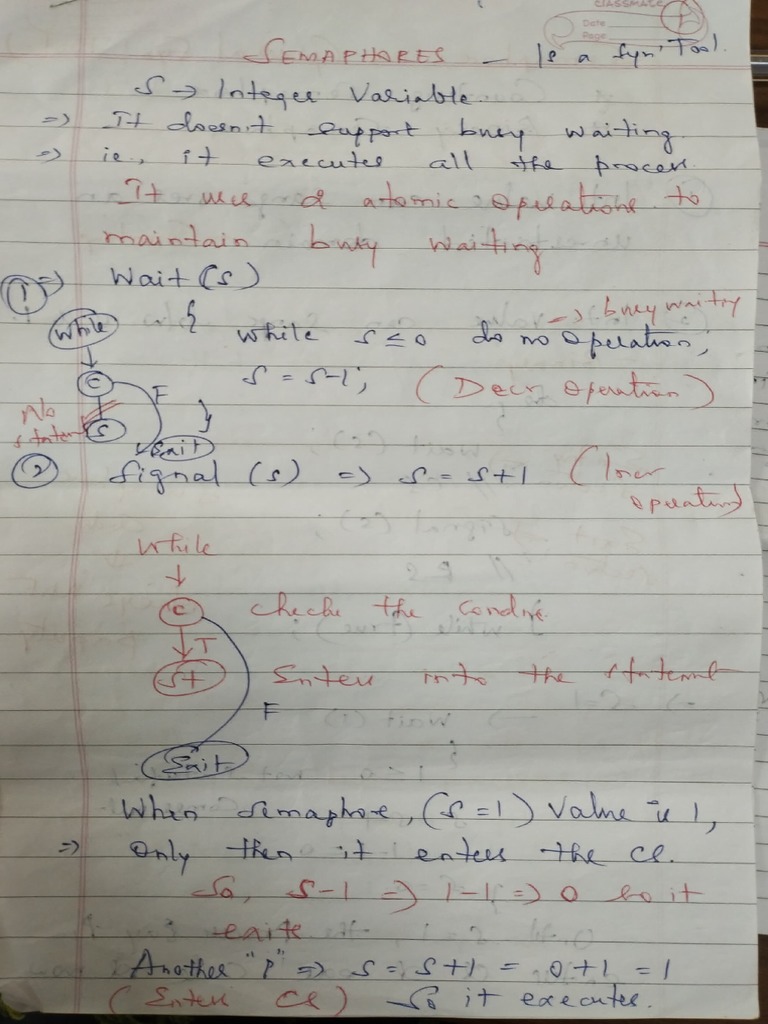 CLASSMATE
Date
Page
SEMAPHORES – Is a Syn' Tool.
S → Integer Variable.
⇒ It doesn't support busy waiting.
⇒ ie., it executes all the process.
It uses 2 atomic operations to
maintain busy waiting.
① ⇒ Wait (S)
{ while S ≤ 0 do no operation; → busy waiting
While
S = S-1; (Decr operation)
C
F
No
S
}
Exit
② Signal (S) ⇒ S = S+1 (Incr
operation)
While
C Checks the
T
St Enters into the statement
F
Exit
When semaphore, (S=1) Value is 1,
⇒ Only then it enters the CS.
So, S-1 ⇒ 1-1 ⇒ 0 so it
exits
Another "P" ⇒ S = S+1 = 0+1 = 1
(Enters CS) So it executes.